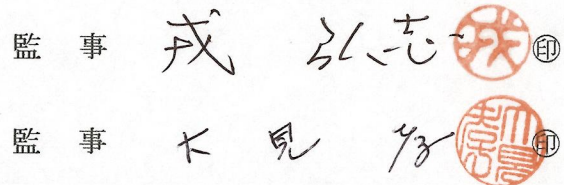 監 事 戎 弘志 ㊞
監 事 大見 ㊞